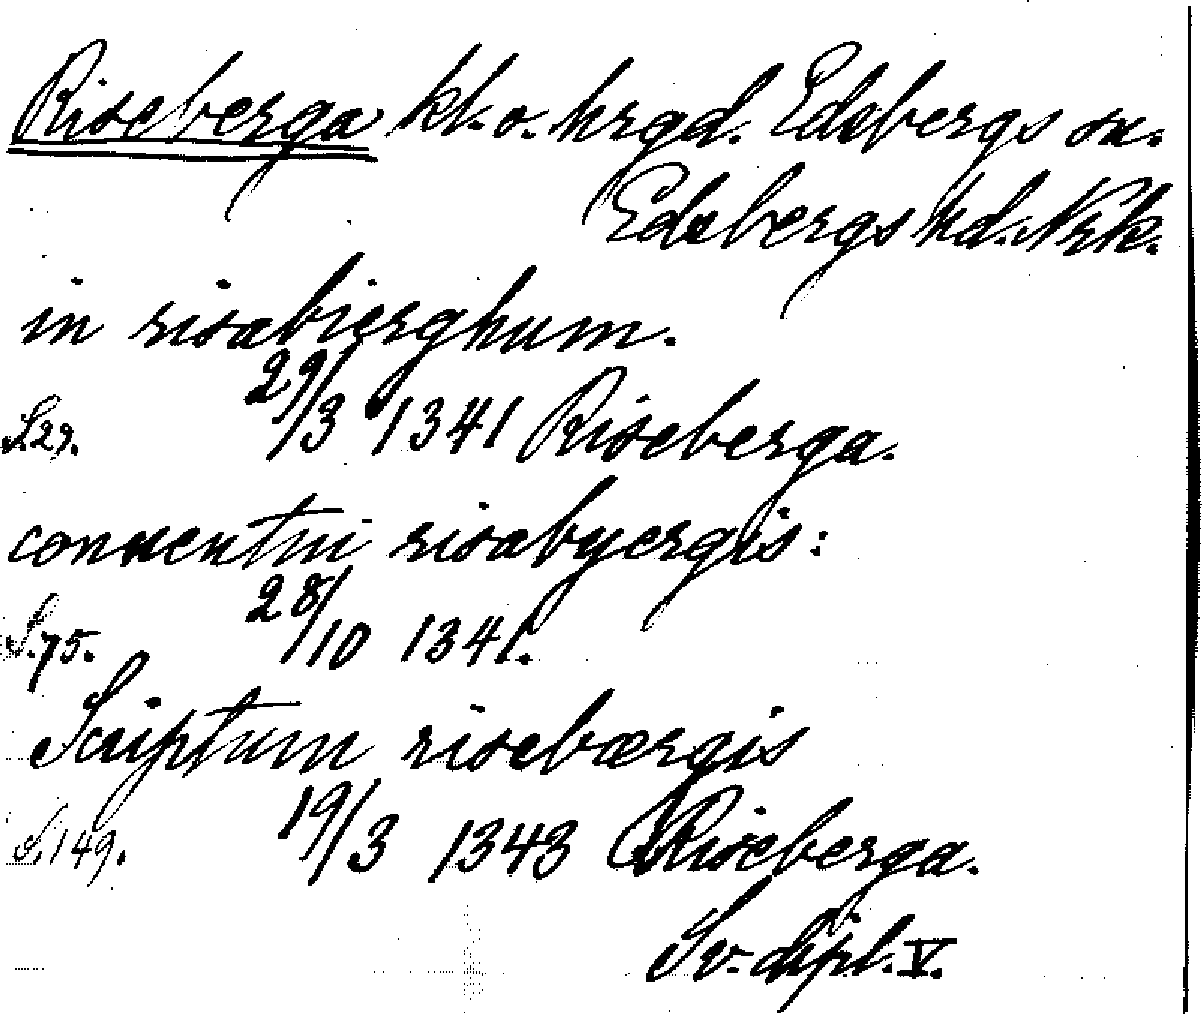 Riseberga kl. o. hrgd. Edsbergs sn.
Edsbergs hd. Nrk.
in risæbierghum.
S. 29. 29/3 1341 Riseberga.
conuentui risæbyergis:
S. 75. 28/10 1341.
Scriptum risebærgis
S. 149. 19/3 1343 Riseberga.
Sv. dipl. V.